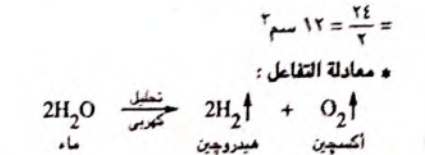 = ٢٤/٢ = ١٢ سم٣
* معادلة التفاعل :
2H₂O تحليل كهربى → 2H₂↑ + O₂↑
ماء هيدروچين أكسچين